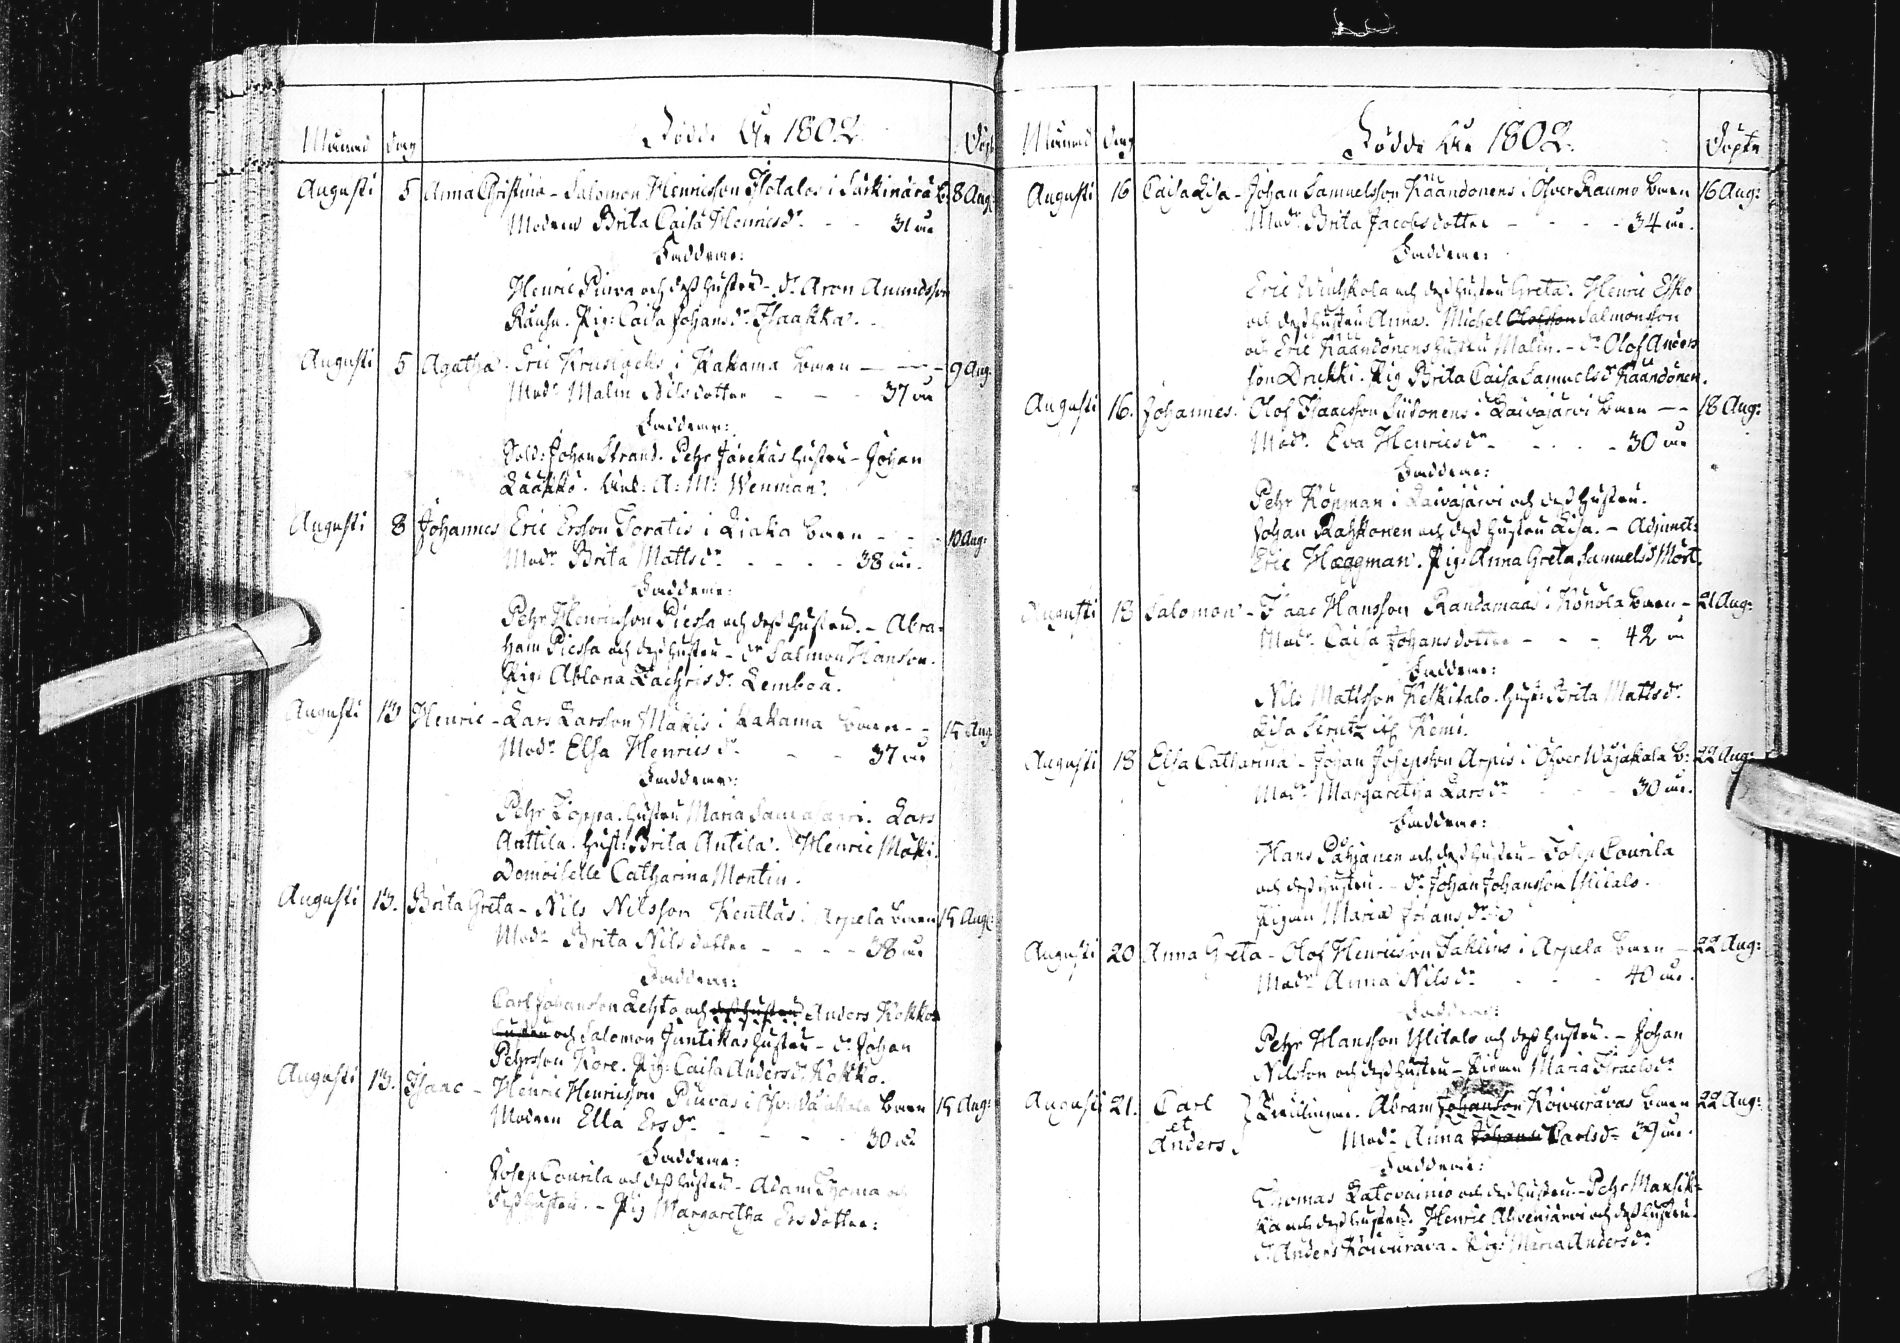 Månad dag Födde År 1802. Döpt
Augusti 5 Anna Christina - Salomon Henricsson Isotalos i B: 8 Aug:
Modren Brita Caisa Henricsdr - - 31 år
Faddrar:
Henric Piuva och dess hustru - dr. Aron Anundsson
Rauhu. Pig: Caisa Johansdr Isaakka.
Augusti 5 Agatha - Eric i Kakama barn - - - 9 Aug:
Modr Malin Nilsdotter - - - 37 år
Faddrar:
Sold: Johan Strand. Pehr Junekas hustru - Johan
Lääkkö. A: M: Wenman.
Augusti 8 Johannes Eric Ersson Toratis i Liaka barn - - 10 Aug:
Modr Brita Mattsdr - - - - 38 år.
Faddrar:
Pehr Henricsson Piessa och dess hustru. - Abra-
ham Piessa och dess hustru - dr Salmon Hanson.
Pig: Ablona Zachrisdr Lembou.
Augusti 13 Henric - Lars Larsson Mäkis i Kakama barn - - 15 Aug:
Modr Elsa Henricsdr - - 37 år
Faddrar:
Pehr Toppa. hustru Maria Lars
Anttila. hust: Brita Antila. Henric Mäki.
Domoiselle Catharina Montin.
Augusti 13. Brita Greta - Nils Nilsson Kenttäs i Arpela barn 15 Aug:
Modr Brita Nilsdotter - - - - 38 år
Faddrar:
Carl Johansson Lehto och dess hustru Anders Kokkos
hustru och Salomon Juntikas hustru - dr Johan
Pehrsson Kore. Pig: Caisa Andersdr Kokko.
Augusti 13. Isaac - Henric Henricsson Piuvas i barn 15 Aug:
Modren Ella Ersdr - - - 30 år
Faddrar:
Josep Courila och dess hustru - Adam Thoma och
dess hustru. - Pig Margaretha Ersdotter:
Månad dag Födde År 1802. Döpte
Augusti 16 Caisa Lisa - Johan Samuelsson Käändönens i Öfver Raumo barn 16 Aug:
Modr Brita Jacobsdotter - - - - 34 år.
Faddrar:
Eric och dess hustru Greta. Henric Esko
och dess hustru Anna. Michel Olofsson Salmonsson
och Eric Käändönens hustru Malin. - dr Olof Anders
son Drukki. Pig Brita Caisa Samuelsdr Käändönen.
Augusti 16. Johannes. Olof Isaacsson Sutonens i Laivajärvi barn - - 18 Aug:
Modr Eva Henricsdr - - - - 30 år
Faddrar:
Pehr Köpman i Laivajärvi och dess hustru.
Johan Rahkonen och dess hustru Lisa. - Adjunct:
Eric Hæggman. Pig: Anna Greta Samuelsd Mört.
Augusti 18 Salomon - Isaac Hansson Randamaas i Könöla barn - 21 Aug:
Modr Caisa Johansdotter - - - 42 år
Faddrar:
Nils Mattsson Keskitalo. hust: Brita Mattsdr.
Lisa Strutz Kemi.
Augusti 18 Elsa Catharina - Johan Josepsson Arpis i Öfver Wojakala B: 22 Aug:
Modr Margaretha Larsdr - - - 30 år.
Faddrar:
Hans Pähjanen och dess hustru - Josep Courila
och dess hustru. - dr. Johan Johansson Ylitalo.
Pigan Maria Johansdr
Augusti 20 Anna Greta - Olof Henricsson Jaklins i Arpela barn - 22 Aug:
Modr Anna Nilsdr - - - 40 år.
Faddrar:
Pehr Hansson Ylitalo och dess hustru. - Johan
Nilsson och dess hustru - Pigan Maria Israelsdr
Augusti 21. Carl et Anders. } Tvillingar. Abram Johansson Koivuravas barn 22 Aug:
Modr Anna Johans Carlsdr 39 år.
Faddrar:
Thomas Latovainio och dess hustru - Pehr Mansik-
ka och dess hustru. Henric Ahvenjärvi och dess hustru.
d. Anders Koivurava. Pig: Maria Andersdr